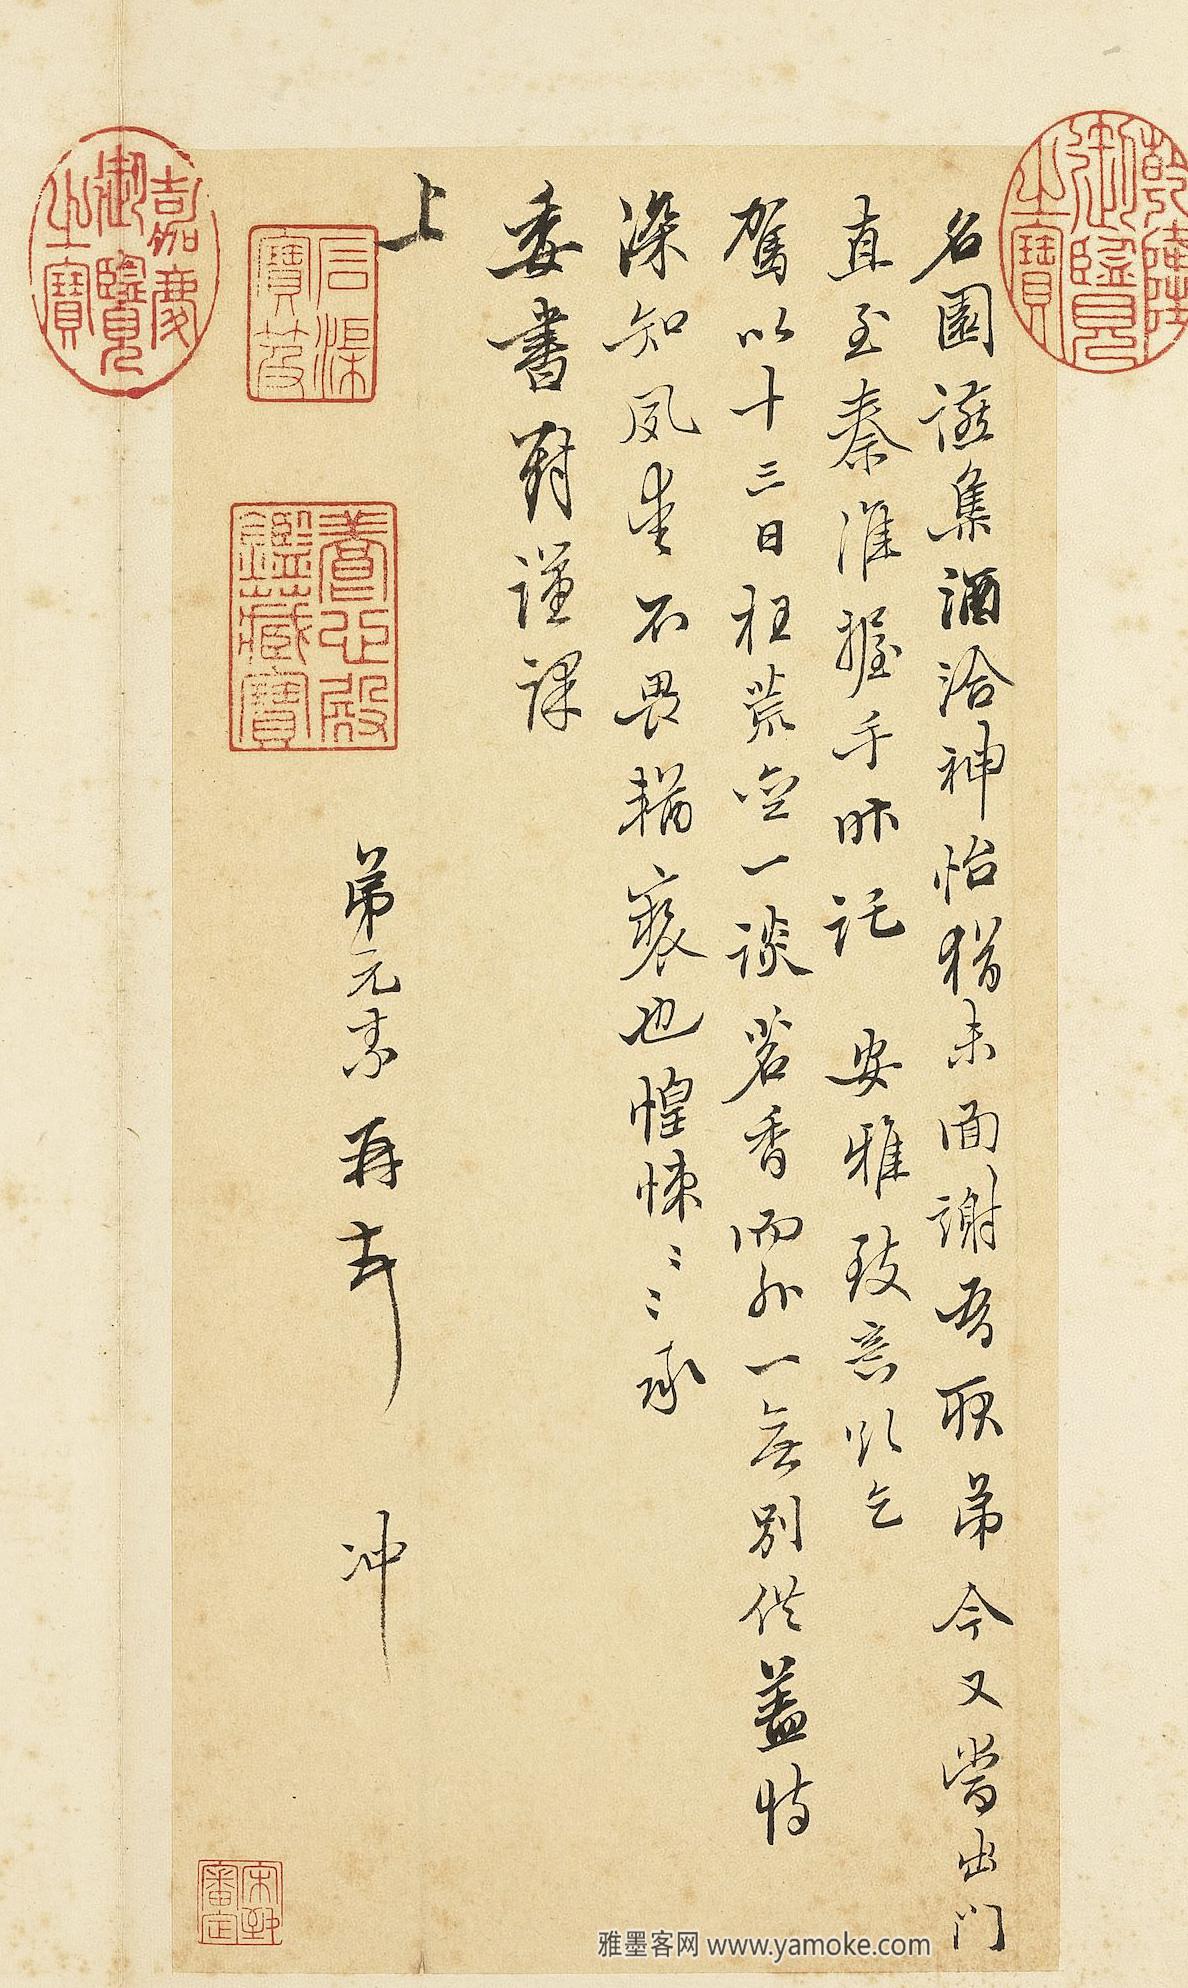 乾隆御覽之寶
名園讌集酒洽神怡猶未面謝吾耿弟今又當出門
直至秦淮握手昨託 安雅致意欲乞
駕以十三日枉荒一談茗香而外一無別供蓋恃
深知夙愛不畏輶褻也惶悚〻〻承
委書對謹課
上
弟元素再 冲
石渠寶笈
養心殿鑑藏寶
宋致審定
嘉慶御覽之寶
雅墨客网 www.yamoke.com